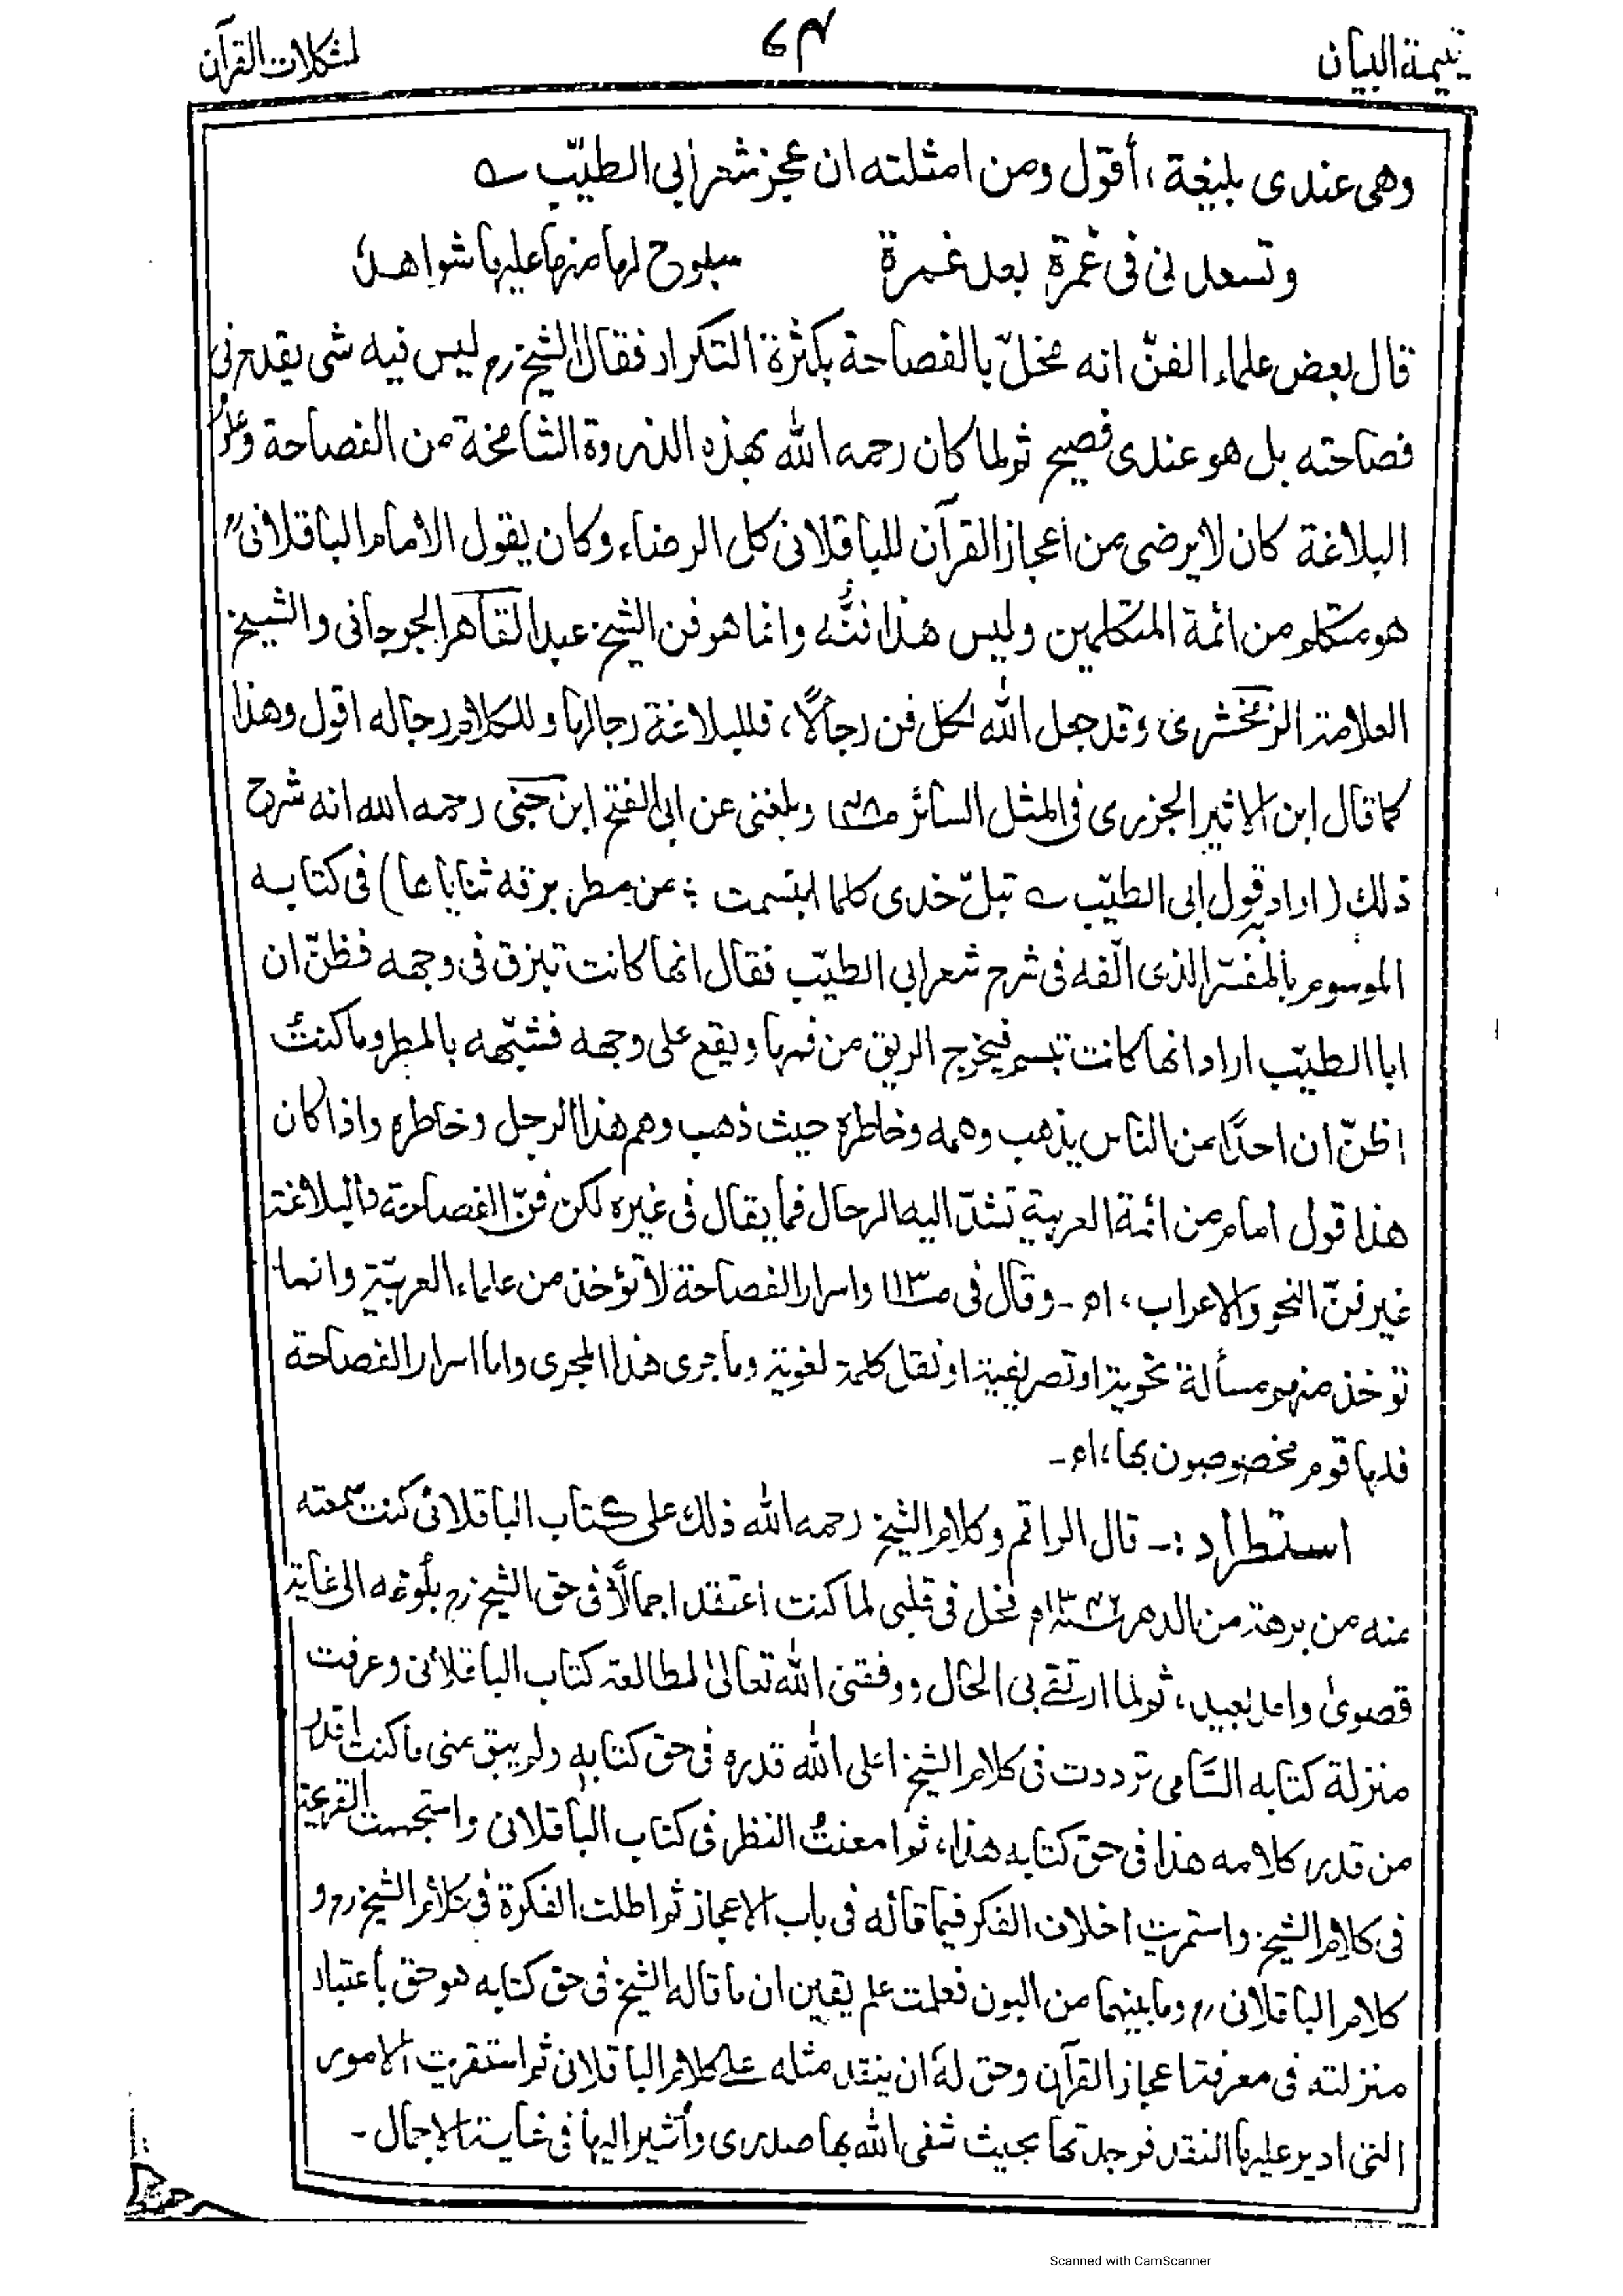 يتيمة البيان ٧٣ لمشكلات القرآن
وهى عندى بليغة، أقول ومن امثلته ان عجز شعر أبى الطيّب ؎
وتسعدنى فى غمرةٍ بعد غمرة سبوح لها منها عليها شواهدُ
قال بعض علماء الفنّ انه مخلّ بالفصاحة بكثرة التكرار فقال الشيخ رح ليس فيه شى يقدح فى
فصاحته بل هو عندى فصيح ثم لما كان رحمه الله بهذه الذروة الشامخة من الفصاحة وعلو
البلاغة كان لا يرضى من اعجاز القرآن للباقلانى كل الرضاء وكان يقول الامام الباقلانىؒ
هو متكلم من ائمة المتكلمين وليس هذا فنُّه وانما هو فن الشيخ عبد القاهر الجرجانى والشيخ
العلامة الزمخشرى وقد جعل الله لكل فن رجالًا، فللبلاغة رجالها وللكلام رجاله اقول وهذا
كما قال ابن الاثير الجزرى فى المثل السائر وبلغنى عن ابى الفتح ابن جنى رحمه الله انه شرح
ذلك (اراد به قول ابى الطيّب ؎ تبلّ خدى كلما ابتسمت ؛ من مطر برقه ثناياها) فى كتابه
الموسوم بالمفسر الذى الّفه فى شرح شعر ابى الطيّب فقال انها كانت تبزق فى وجهه فظنّ ان
ابا الطيّب اراد انها كانت تبسم فيخرج الريق من فمها ويقع على وجهه فشبّهه بالمطر وما كنتُ
اظنّ ان احدًا من الناس يذهب وهمه وخاطره حيث ذهب وهم هذا الرجل وخاطره واذا كان
هذا قول امام من ائمة العربية تشدّ اليه الرحال فما يقال فى غيره لكن فنّ الفصاحة والبلاغة
غير فنّ النحو والاعراب، اه‍ـ وقال فى صـ١١٣ واسرار الفصاحة لا تؤخذ من علماء العربيّة وانما
توخذ منهم مسألة نحوية او تصريفية او نقل كلمة لغوية وما جرى هذا المجرى واما اسرار الفصاحة
فلها قوم مخصوصون بها، اه‍ـ
استطراد :ـ قال الراقم وكلام الشيخ رحمه الله ذلك على كتاب الباقلانى كنت سمعته
منه من برهة من الدهر فحل فى قلبى لما كنت اعتقد اجمالًا فى حق الشيخ رح بلوغه الى غاية
قصوىٰ وامد بعيد، ثم لما ارتقٰى بى الحال ووفقنى الله تعالىٰ لمطالعة كتاب الباقلانى وعرفت
منزلة كتابه السَّامى ترددت فى كلام الشيخ اعلى الله قدره فى حق كتابه ولم يبق منى ما كنت اقدر
من قدر كلامه هذا فى حق كتابه هذا، ثم امعنتُ النظر فى كتاب الباقلانى واستجمت القريحة
فى كلام الشيخ واستمريت اخلاف الفكر فيما قاله فى باب الاعجاز ثم اطلت الفكرة فى كلام الشيخ رح و
كلام الباقلانى رح وما بينهما من البون فعلمت علم يقين ان ما قاله الشيخ فى حق كتابه هو حق باعتبار
منزلته فى معرفة اعجاز القرآن وحق لهٗ ان ينقد مثله على كلام الباقلانى ثم استقريت الامور
التى ادير عليها النقد فوجدتها بحيث شفى الله بها صدرى وأشير اليها فى غاية الاجمال ـ
Scanned with CamScanner